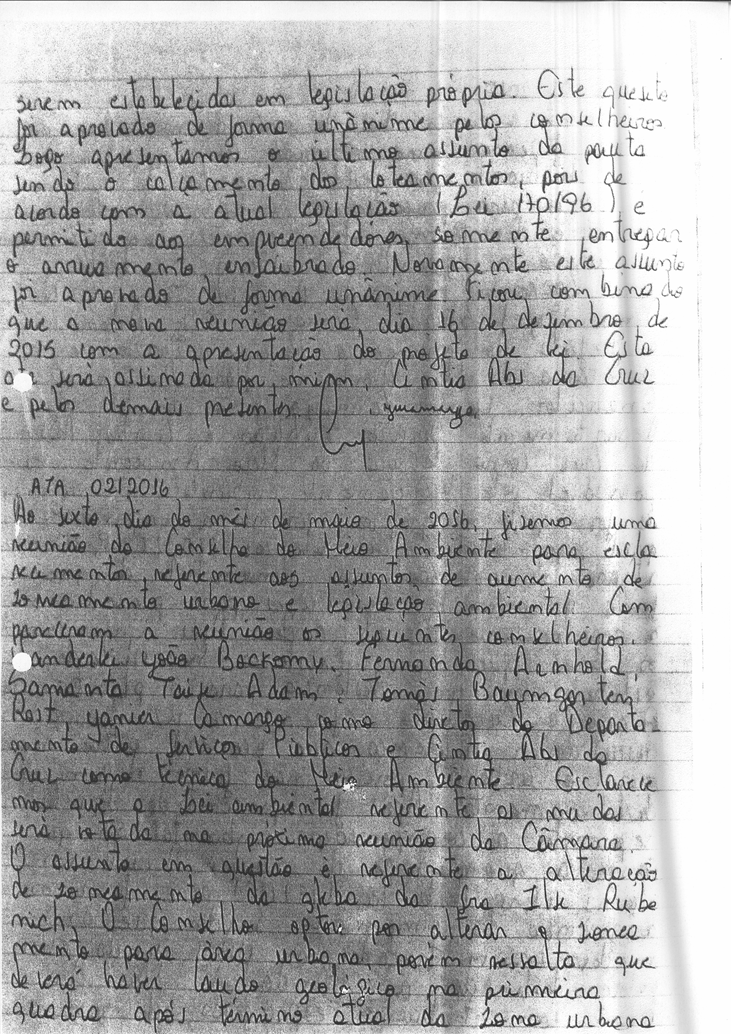 serem estabelecidas em legislação própria. Este quesito
foi aprovado de forma unânime pelos conselheiros.
Logo apresentamos o último assunto da pauta
sendo o calçamento dos loteamentos, pois de
acordo com a atual legislação (Lei 170/96) é
permitido aos empreendedores, somente entregar
o arruamento ensaibrado. Novamente este assunto
foi aprovado de forma unânime. Ficou combinado
que a nova reunião será dia 16 de dezembro de
2015 com a apresentação do projeto de lei. Esta
ata será assinada por mim, Cintia Abs da Cruz
e pelos demais presentes.
ATA 02/2016
Ao sexto dia do mês de maio de 2016, fizemos uma
reunião do Conselho do Meio Ambiente para escla
recimentos referente aos assuntos de aumento de
zoneamento urbano e legislação ambiental. Com
pareceram a reunião os seguintes conselheiros:
Vanderlei João Bockorny, Fernanda Arnhold,
Samanta Taise Adam, Tomás Baumgarten
Rost, Camargo como diretor do Departa
mento de Serviços Públicos e Cintia Abs da
Cruz como técnica do Meio Ambiente. Esclarece
mos que a Lei ambiental referente as mudas
será votada na próxima reunião da Câmara.
O assunto em questão é referente a alteração
de zoneamento da gleba da Sra Ilse Rube
nich. O Conselho optou por alterar o zonea
mento para área urbana, porém ressalta que
deverá haver laudo geológico na primeira
quadra após término atual da zona urbana